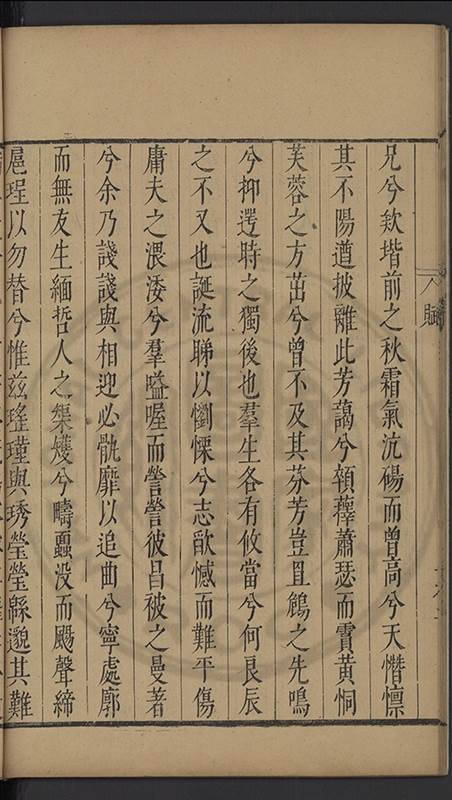 賦
兄兮欸堦前之秋霜氣沆碭而曾高兮天憯懍
其不陽遒披離此芳藹兮頷蘀蕭瑟而霣黃恫
芙蓉之方茁兮曾不及其芬芳豈且鴂之先鳴
兮抑遌時之獨後也羣生各有攸當兮何良辰
之不又也誕流睇以懰慄兮志欿憾而難平傷
庸夫之渨涹兮羣嗌喔而謍謍彼昌被之曼著
兮余乃諓諓與相迎必骫靡以追曲兮寧處廓
而無友生緬哲人之集矱兮疇蠠没而颺聲締
扈珵以勿替兮惟兹瑤瑾與琇瑩瑩緜邈其難